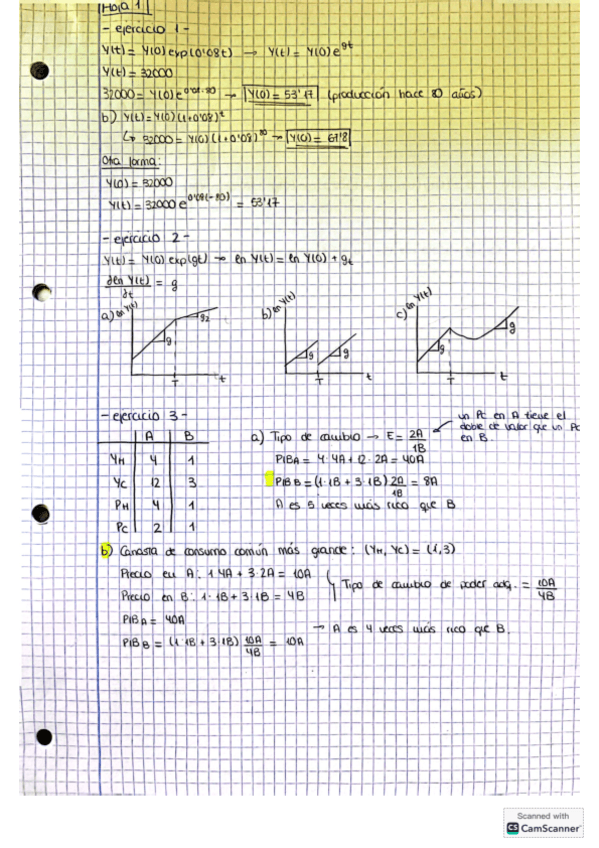 Hoja 1
- ejercicio 1 -
Y(t) = Y(0) exp(0'08t) → Y(t) = Y(0) e^gt
Y(t) = 32000
32000 = Y(0) e^0'08·80 → Y(0) = 53'17 (producción hace 80 años)
b) Y(t) = Y(0) (1+0'08)^t
↳ 32000 = Y(0) (1+0'08)^80 → Y(0) = 67'8
Otra forma:
Y(0) = 32000
Y(t) = 32000 e^0'08(-80) = 53'17
- ejercicio 2 -
Y(t) = Y(0) exp(gt) → ln Y(t) = ln Y(0) + gt
dln Y(t) / dt = g
a) ln Y(t) g g2 T t
b) ln Y(t) g g T t
c) ln Y(t) g g T t
- ejercicio 3 -
A B
YH 4 1
YC 12 3
PH 4 1
PC 2 1
a) Tipo de cambio → E = 2A / 1B
un PC en A tiene el doble de valor que un PC en B.
PIBA = 4·4A + 12·2A = 40A
PIB B = (1·1B + 3·1B) 2A / 1B = 8A
A es 5 veces más rico que B
b) Canasta de consumo común más grande: (YH, YC) = (1,3)
Precio en A: 1·4A + 3·2A = 10A
Precio en B: 1·1B + 3·1B = 4B
Tipo de cambio de poder adq. = 10A / 4B
PIBA = 40A
PIB B = (1·1B + 3·1B) 10A / 4B = 10A
→ A es 4 veces más rico que B.
Scanned with
CS CamScanner